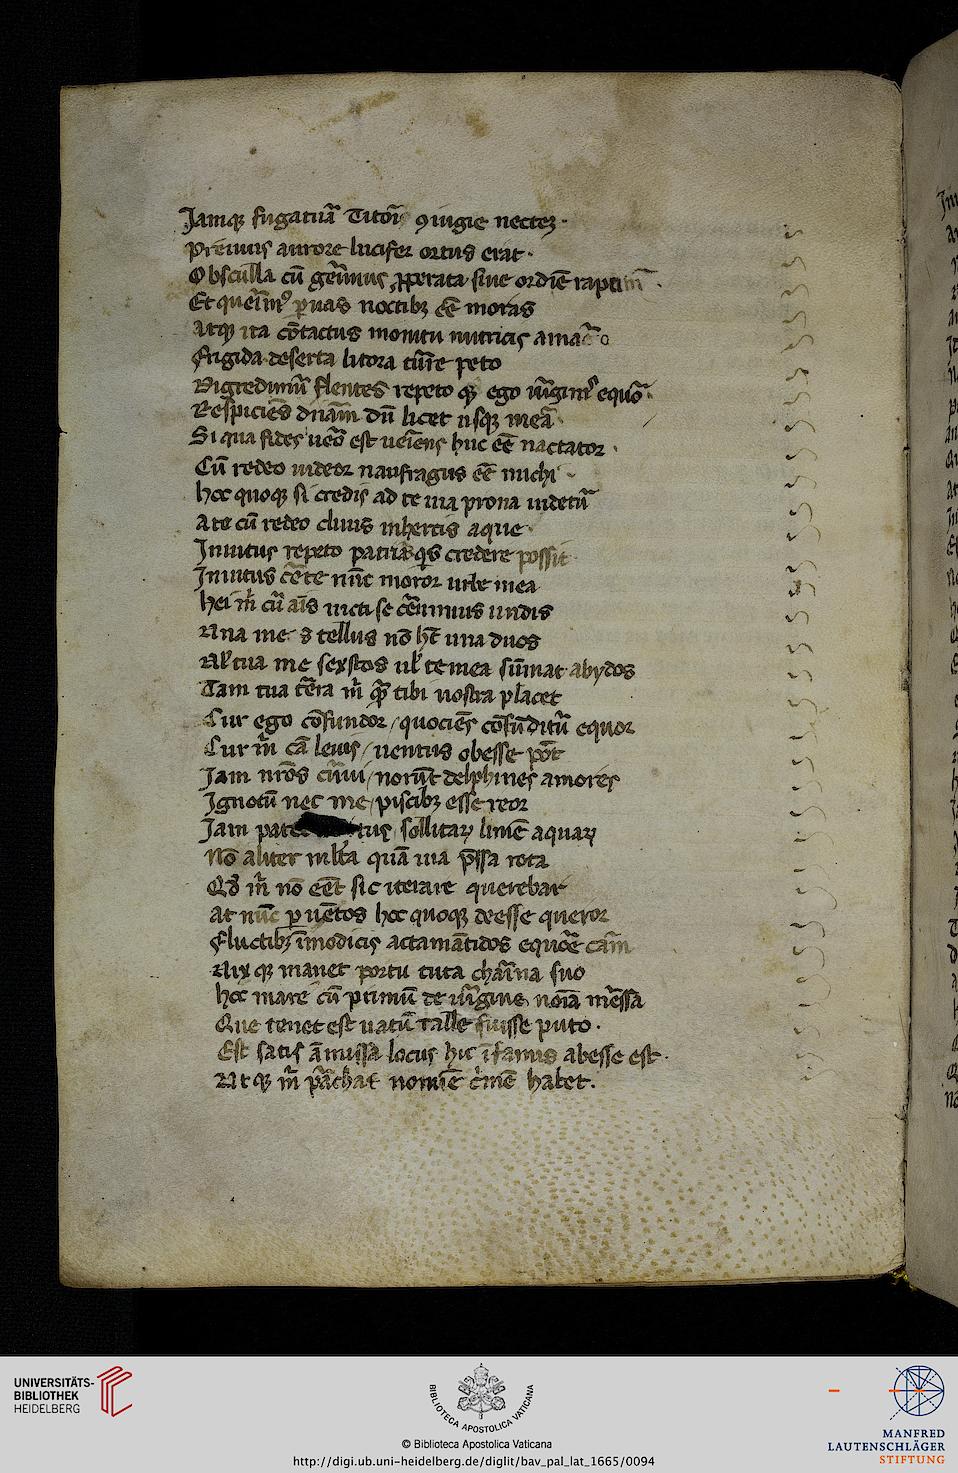 Jamq; fugatura Titōi ꝯiugie nectez·
Previus aurore lucifer ortus erat·
Obsculla cū gem̄us ꝓperata sine ordīe raptim̄·
Et ꝑuas noctibꝫ eē moras
Atqꝫ ita cōtactus monitu nutricis
Frigida deserta litora peto
Digredimur flentes repeto qꝫ ego equō·
Respiciēs dnām dū licet usqꝫ meā·
Si qua fides est ueīens huc eē nactator·
Cū redeo uideor naufragus eē michi·
hoc quoqꝫ si credis ad te uia prona uidetur̄
A te cū redeo cliuis inhertis aque·
Inuitus repeto patriā qͥs credere possit
Inuitus cēte nūc moror urbe mea
hei m̄ cū aīs iucti se cēnimus undis
Una me s tellus nō hēt una duos
Ul tua me sexstos ul te mea sūmat abydos
Tam tua tēra m̄ qͣꝫ tibi nostra placet
Cur ego cōfundor/quociēs cōfūditur equor
Cur m̄ cā leuis/uentus obesse pōt
Jam nrōs cūui/norūt delphines amores
Ignotū nec me/piscibꝫ esse reor
Jam sollitaꝝ limē aquaꝝ
Nō aliter mlta quā uia p̄ssa rota
Qđ m̄ nō eēt sic iterare querebar
At nūc ꝑ uētos hoc quoqꝫ deesse queror
Fluctibꝫ īmodicis actamātidos equōe
Uix qꝫ manet portu tuta chaīna suo
hoc mare cū primū de uirgine noīa mēssa
Que tenet est natū talle fuisse puto·
Est satis āmissa locus hic īfamis abesse est·
Ut qꝫ m̄ nomīe cīmē habet.
UNIVERSITÄTS-
BIBLIOTHEK
HEIDELBERG
BIBLIOTECA APOSTOLICA VATICANA
© Biblioteca Apostolica Vaticana
http://digi.ub.uni-heidelberg.de/diglit/bav_pal_lat_1665/0094
MANFRED
LAUTENSCHLÄGER
STIFTUNG